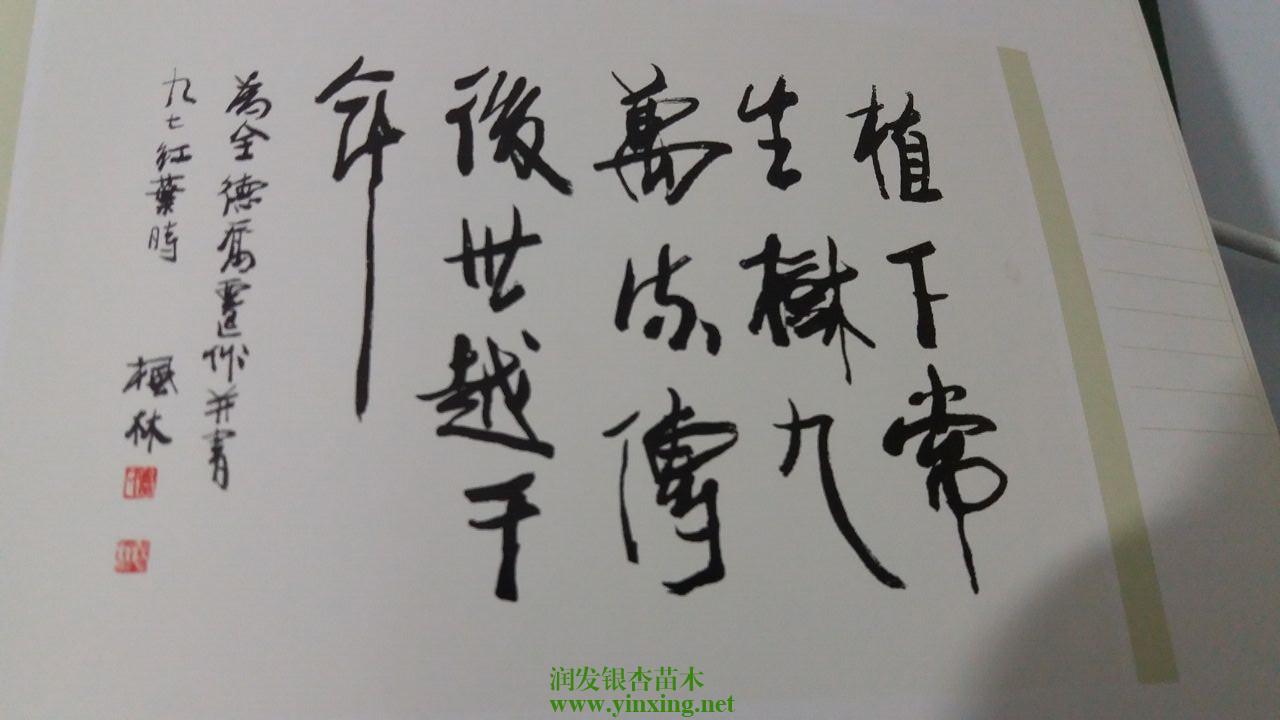 植下常
生樹九
萬流傳
後世越千
年
為全德喬遷作并書
九七紅葉時
楓林
润发银杏苗木
www.yinxing.net